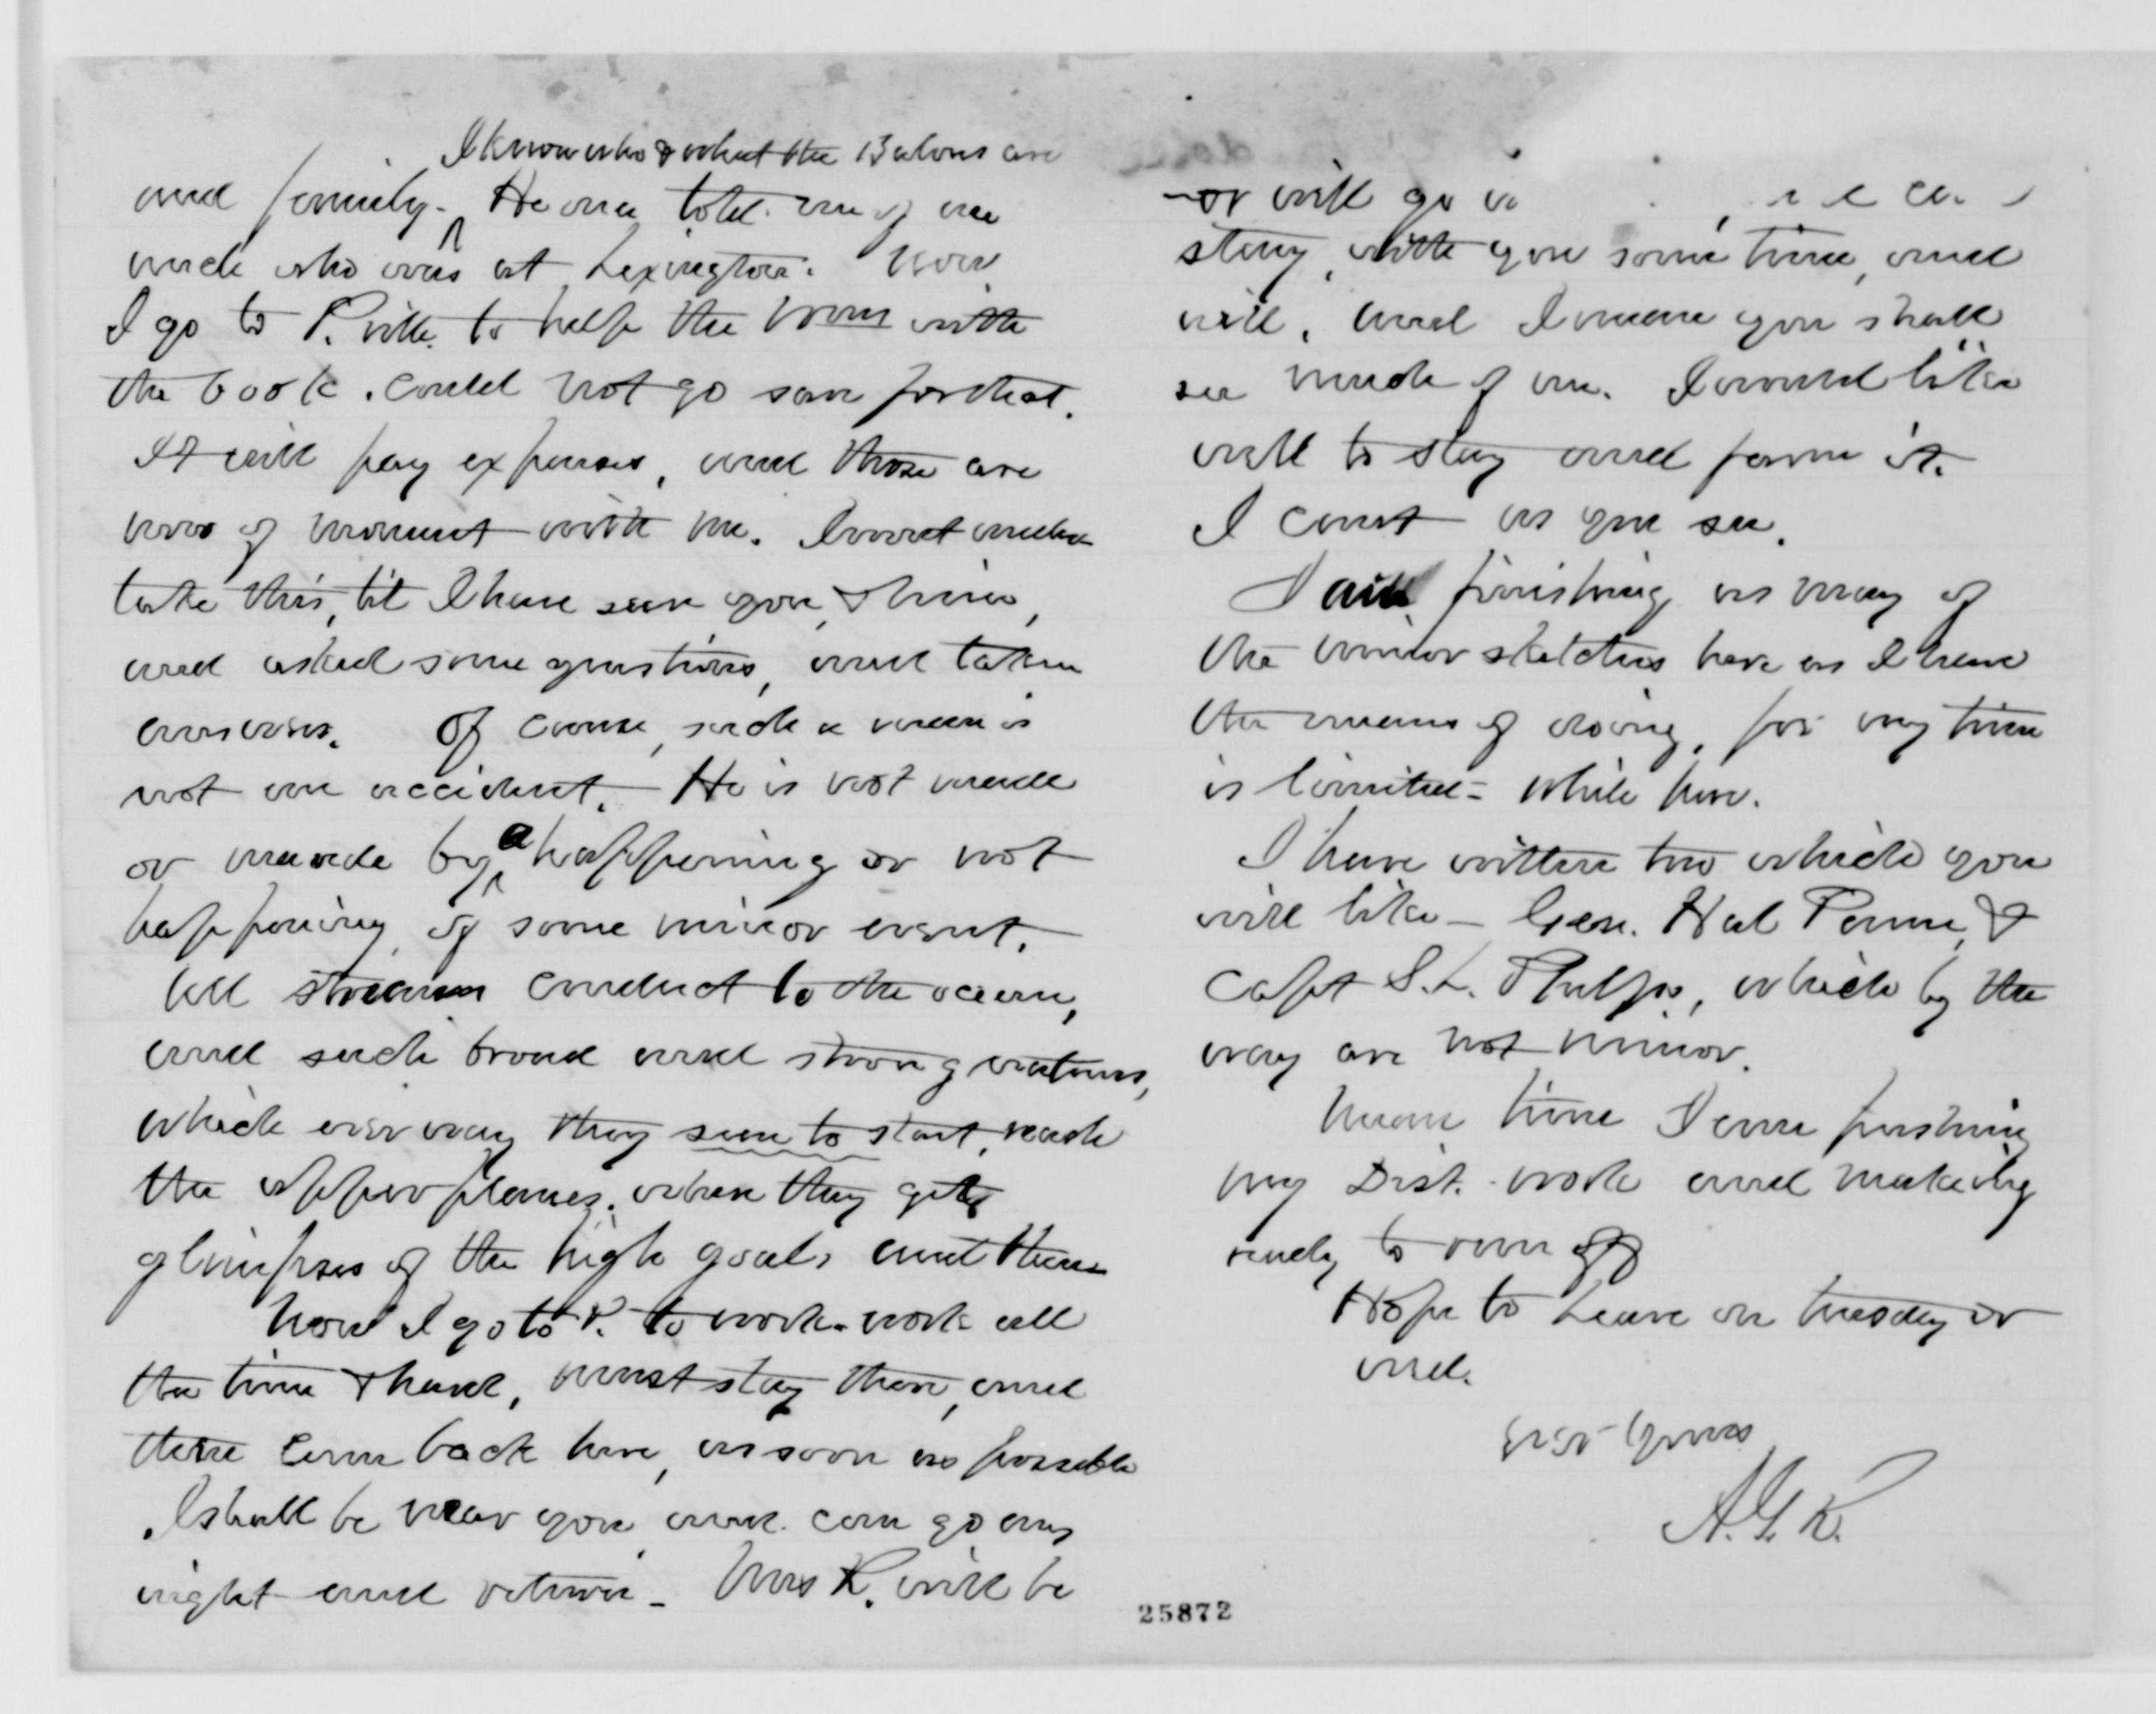 I know who & what the Balous are
and family. He once told me of an
uncle who was at Lexington. Now
I go to P.ville to help the man with
the book. Could not go save for that.
It will pay expenses, and those are
now of moment with me. I wont under
take this, til I have seen you, & him,
and asked some questions, and taken
answers. Of course, such a man is
not an accident. He is not made
or unmade by a happening or not
happening, of some minor event.
All streams conduct to the ocean,
and such broad and strong natures,
which ever way they seem to start, reach
the upper planes. when they get
glimpses of the high goal, and then
Now I go to P. to work. work all
the time & hard, must stay there, and
then come back here, as soon as possible
I shall be near you and can go any
night and return - Mrs R. will be
or will go
stay, with you some time, and
will, and I mean you shall
see much of me. I would like
well to stay and farm it.
I cant as you see.
I am finishing as many of
the minor sketches here as I have
the means of doing, for my time
is limited - while here.
I have written two which you
will like - Gen. Hal Paine, &
Capt S. L. Phelps, which by the
way are not minor.
Mean time I am pushing
my Dist. work and making
ready to run off
Hope to Leave on tuesday or
wed.
Ever Yours
A. G. R.
25872